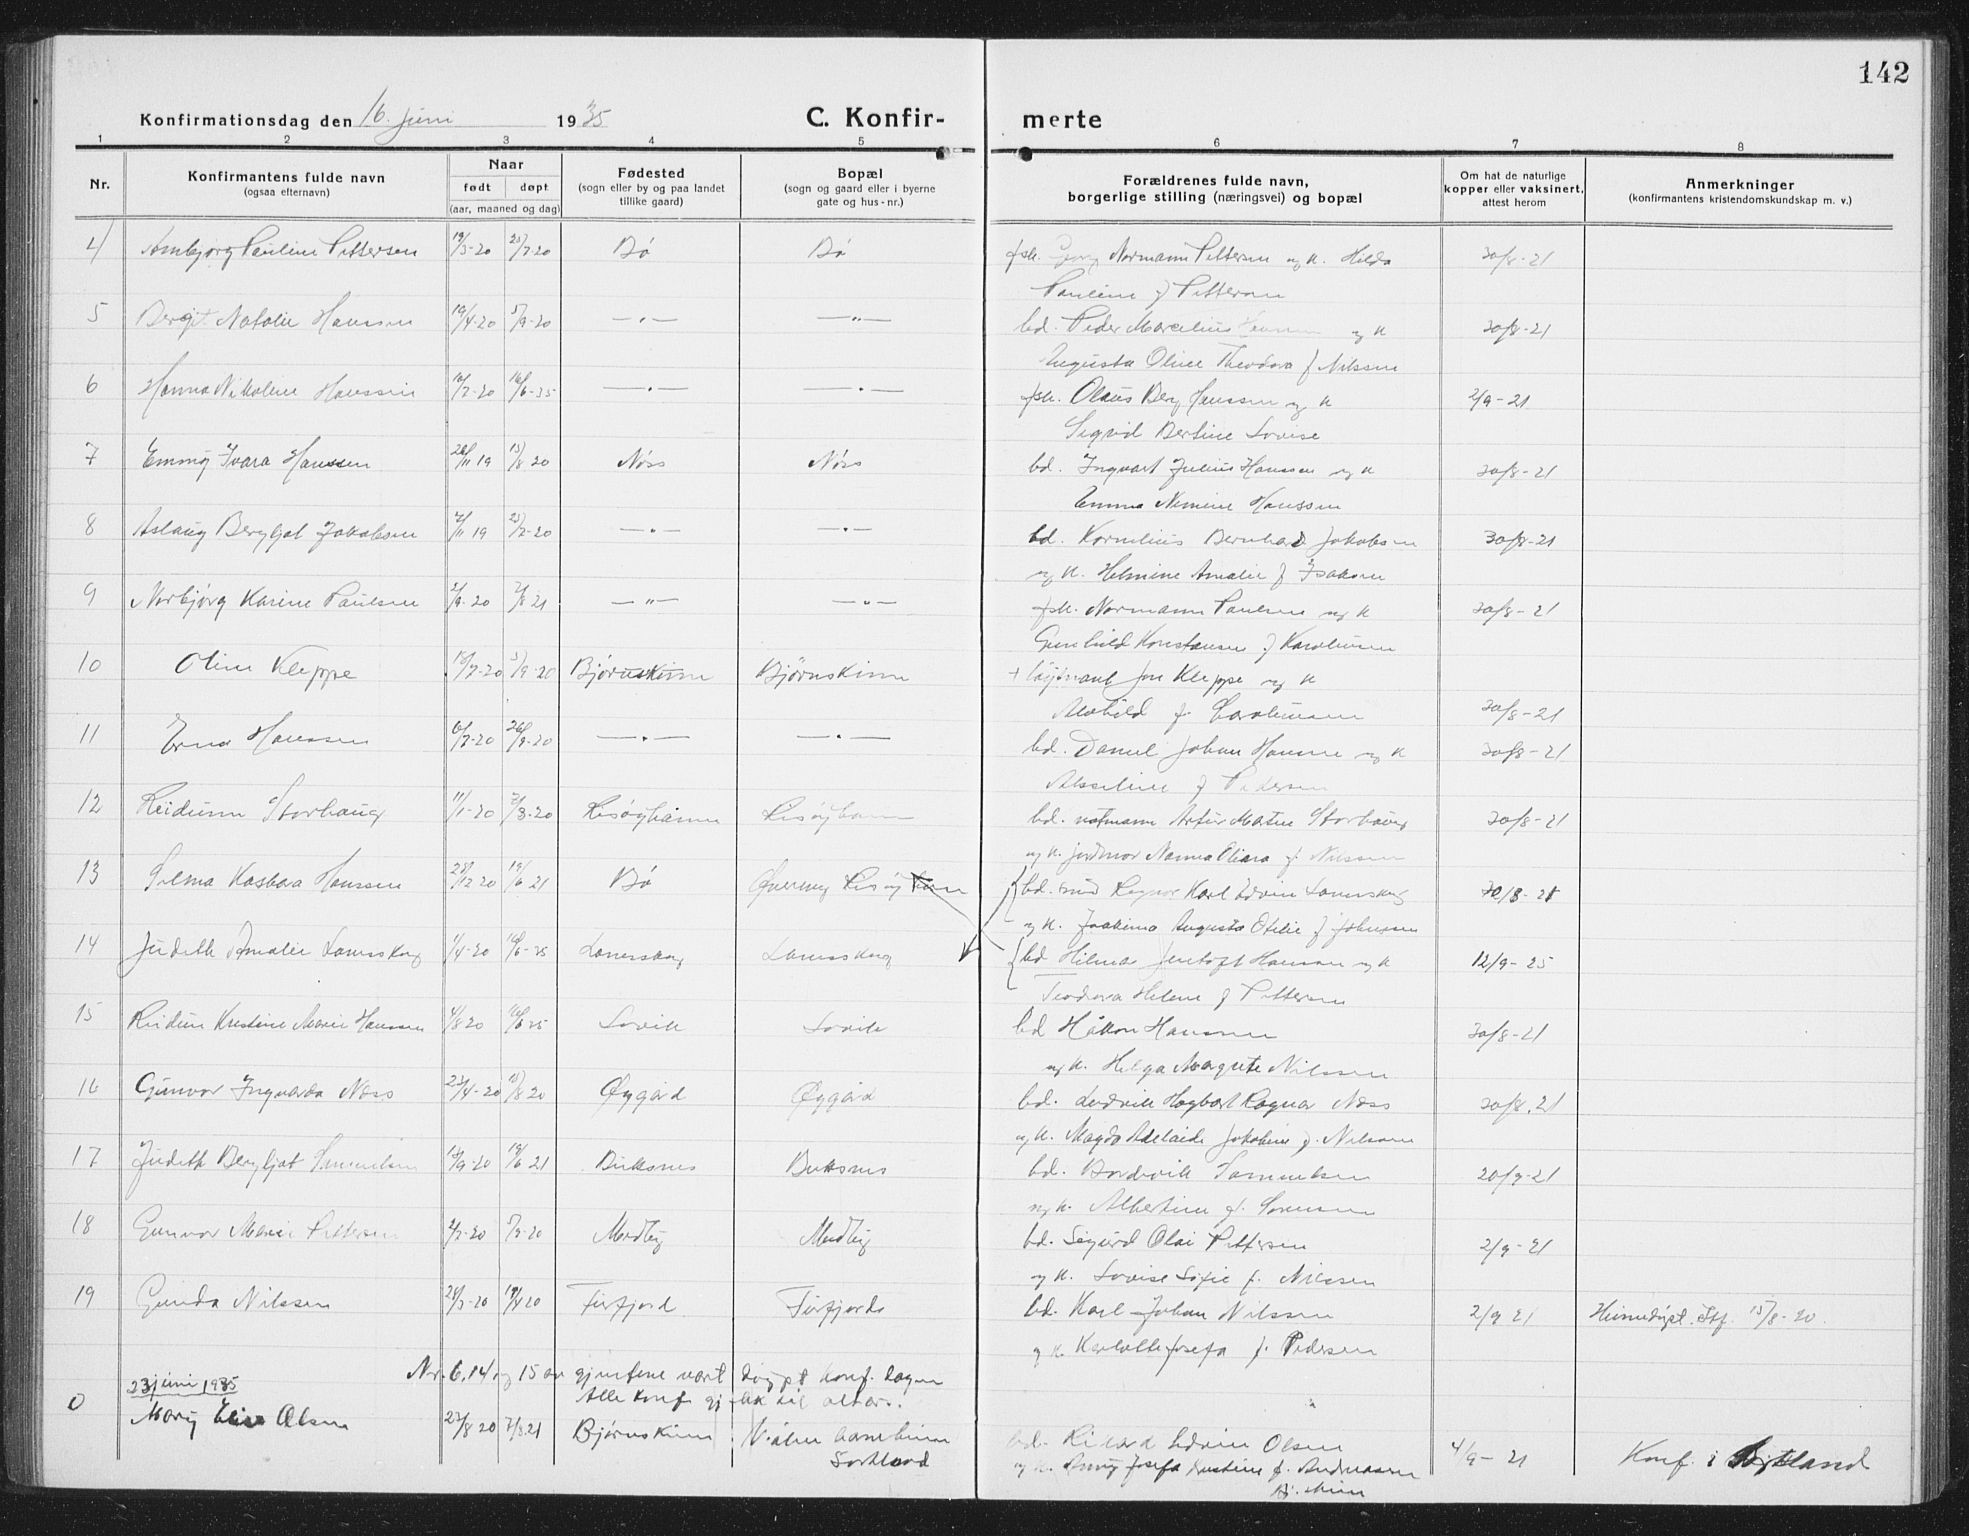 142
Konfirmationsdag den 16. juni 1935
C. Konfir- merte
1 2 3 4 5 6 7 8
Nr.
Konfirmantens fulde navn
(ogsaa efternavn)
Naar
født døpt
(aar, maaned og dag)
Fødested
(sogn eller by og paa landet
tillike gaard)
Bopæl
(sogn og gaard eller i byerne
gate og hus-nr.)
Forældrenes fulde navn,
borgerlige stilling (næringsvei) og bopæl
Om hat de naturlige
kopper eller vaksinert,
attest herom
Anmerkninger
(konfirmantens kristendomskundskap m. v.)
4 Arnbjorg Pauline Pettersen 19/3-20 25/7-20 Bø Bø fsk. Georg Normann Pettersen og k. Hilda 30/8-21
Pauline f Pettersen
5 Bergit Natalie Hanssen 19/4-20 5/9-20 — " — — " — bd. Peder Marcelius Hanssen og k 30/8-21
Augusta Oline Theodora f Nilssen
6 Hanna Nikoline Hanssen 16/7-20 16/6-35 — " — — " — fsk. Olaus Berg Hanssen og k 2/9-21
Sigrid Bertine Lovise
7 Emmy Ivara Hanssen 28/11 19 15/8 20 Nøss Nøss bd. Ingvart Julius Hanssen og k 30/8-21
Emma Nemine Hanssen
8 Aslaug Bergljot Jakobsen 7/11 19 25/7-20 — " — — " — bd. Kornelius Bernhard Jakobsen 30/8-21
og k. Helmine Amalie f Isaksen
9 Norbjørg Karine Paulsen 2/9-20 7/8 21 — " — — " — fsk. Normann Paulsen og k 30/8-21
Gunhild Konstanse f Karolinsen
10 Oline Kleppe 18/7-20 5/9-20 Bjørnskinn Bjørnskinn + løytnant Jon Kleppe og k
Alvhild f. Carolinsen 30/8-21
11 Erna Hanssen 6/7-20 26/9-20 — " — — " — bd. Daniel Johan Hanssen og k 30/8-21
f Pedersen
12 Reidunn Storhaug 11/1-20 7/3-20 Risøyhamn Risøyhamn bd. notmann Artur Martin Storhaug 30/8-21
og k. jordmor Nanna Kliara f. Nilssen
13 Selma Kasbara Hanssen 28/12 20 19/6 21 Bø Risøyhamn bd. smed Ragnar Karl Edvin Lanesskog 30/8-21
og k. Joakima Augusta Otelie f Johnssen
14 Judith Amalie Lanesskog 1/4-20 16/6-35 Lanesskog Lanesskog bd Hilmar Jentoft Hanssen og k 12/9-25
Teodora Helene f Pettersen
15 Reidun Kristine Marie Hanssen 4/8 20 16/6 35 Lovik Lovik bd Håkon Hanssen 30/8-21
og k. Helga Margrete Nilssen
16 Gunvor Ingvarda Næss 23/4-20 15/8 20 Øygård Øygård bd. Ludvik Hagbart Ragnar Næss 30/8.21
og k. Magda Adelaide Jakobine f. Nilssen
17 Judith Bergljot Samuelsen 18/9-20 19/6 21 Buksnes Buksnes bd. Bordevik Samuelsen 20/9-21
og k. Albertine f. Sørensen
18 Gunvor Marie Pettersen 2/2-20 7/3-20 Medby Medby bd. Sigurd Olai Pettersen 2/9-21
og k. Lovise Sofie f. Nilssen
19 Gunda Nilssen 21/3-20 19/4 20 Forfjord Forfjord bd. Karl Johan Nilssen 2/9 21 Heimedøpt. Stf. 15/8-20.
og k. Josefa f. Pedersen
Nr. 6, 14 og 15 av gjentene vart døypt konf. dagen
Alle konf. gj ikk til alters.
23 juni 1935
0 Mary Elise Olsen 23/8 20 7/8 21 Bjørnskinn Sortland bd. Rikard Edvin Olsen 4/9-21 Konf. i Sortland
og k. Anny Josefa Kristine f. Andreassen